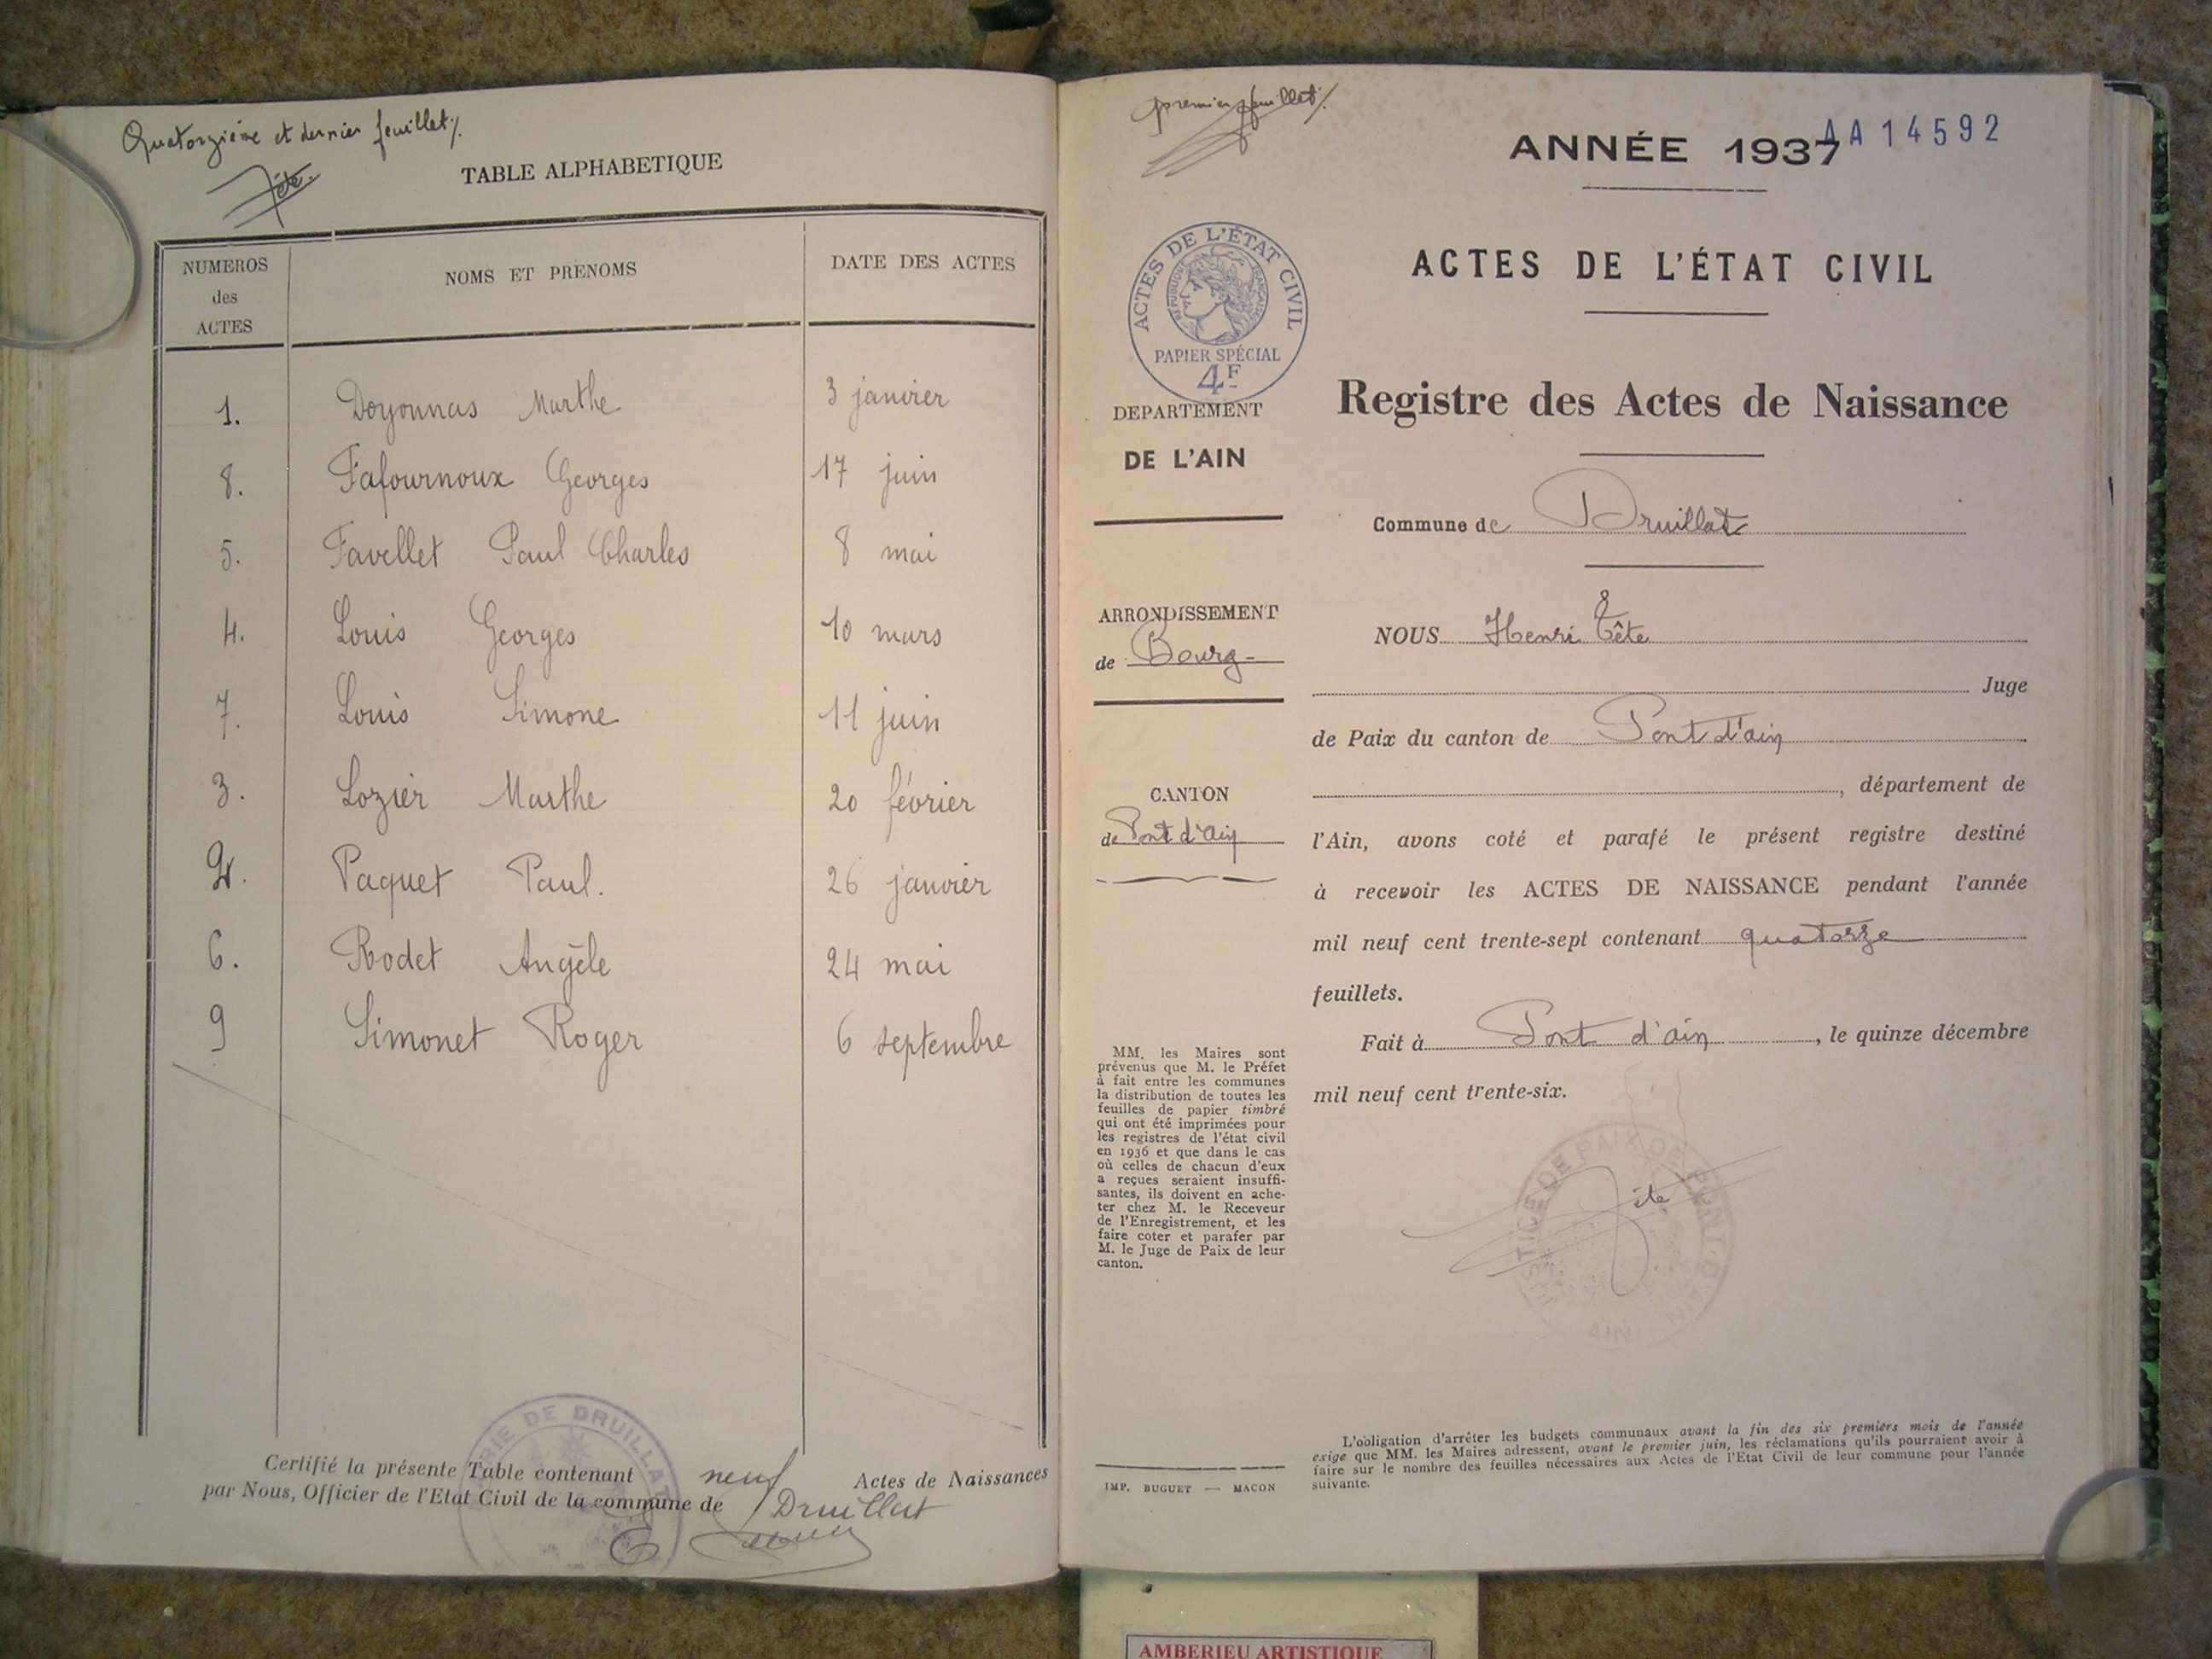 Quatorzième et dernier feuillet /.
Tête.
TABLE ALPHABETIQUE
NUMEROS des ACTES
NOMS ET PRENOMS
DATE DES ACTES
1. Doyonnas Marthe 3 janvier
8. Fafournoux Georges 17 juin
5. Favellet Paul Charles 8 mai
4. Louis Georges 10 mars
7. Louis Simone 11 juin
3. Lozier Marthe 20 février
2. Paquet Paul. 26 janvier
6. Rodet Angèle 24 mai
9 Simonet Roger 6 septembre
RIE DE DRUILLAT
Certifié la présente Table contenant neuf Actes de Naissances
par Nous, Officier de l'Etat Civil de la commune de Druillat
premier feuillet /.
ANNÉE 1937
AA 14592
ACTES DE L'ÉTAT CIVIL
RÉPUBLIQUE FRANÇAISE
PAPIER SPÉCIAL
4F
ACTES DE L'ÉTAT CIVIL
Registre des Actes de Naissance
DEPARTEMENT
DE L'AIN
Commune de Druillat
ARRONDISSEMENT
de Bourg-
CANTON
de Pont d'ain
NOUS Henri Tête
Juge
de Paix du canton de Pont d'ain
, département de
l'Ain, avons coté et parafé le présent registre destiné
à recevoir les ACTES DE NAISSANCE pendant l'année
mil neuf cent trente-sept contenant quatorze
feuillets.
Fait à Pont d'ain, le quinze décembre
mil neuf cent trente-six.
JUSTICE DE PAIX DE PONT-D'AIN
AIN
MM. les Maires sont
prévenus que M. le Préfet
à fait entre les communes
la distribution de toutes les
feuilles de papier timbré
qui ont été imprimées pour
les registres de l'état civil
en 1936 et que dans le cas
où celles de chacun d'eux
a reçues seraient insuffi-
santes, ils doivent en ache-
ter chez M. le Receveur
de l'Enregistrement, et les
faire coter et parafer par
M. le Juge de Paix de leur
canton.
IMP. BUGUET — MACON
L'obligation d'arrêter les budgets communaux avant la fin des six premiers mois de l'année
exige que MM. les Maires adressent, avant le premier juin, les réclamations qu'ils pourraient avoir à
faire sur le nombre des feuilles nécessaires aux Actes de l'Etat Civil de leur commune pour l'année
suivante.
AMBERIEU ARTISTIQUE